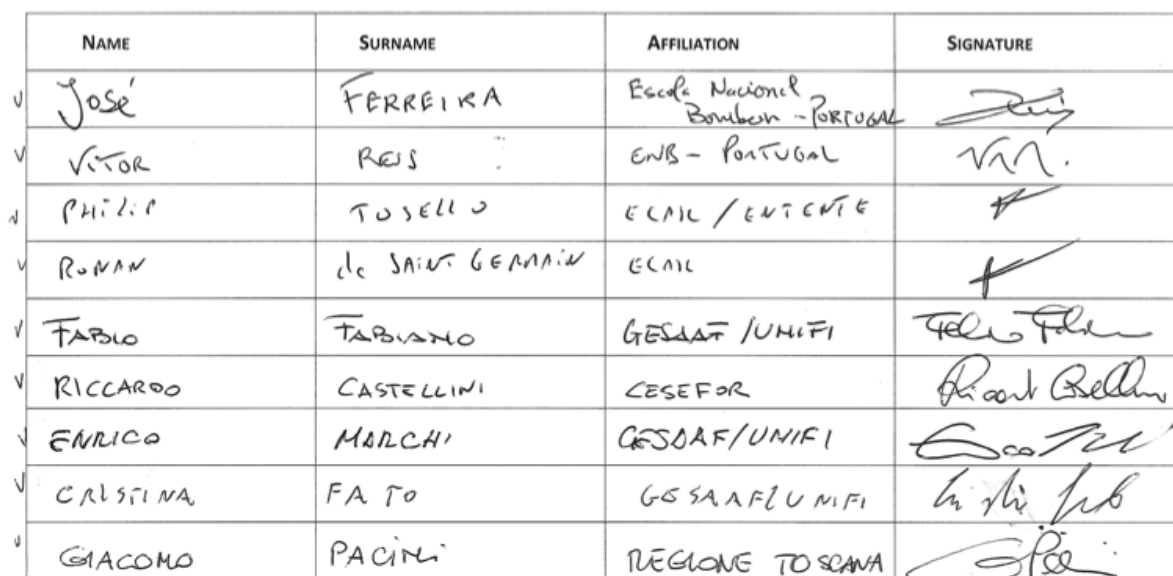 NAME SURNAME AFFILIATION SIGNATURE
José FERREIRA Escola Nacional
Bombeiros - PORTUGAL
VITOR REIS ENB - PORTUGAL
PHILIP TOSELLO ECASC / ENTENTE
RONAN de SAINT GERMAIN ECASC
FABIO FABIANO GESAAF / UNIFI
RICCARDO CASTELLINI CESEFOR
ENRICO MARCHI GESAAF/UNIFI
CRISTINA FATO GESAAF/UNIFI
GIACOMO PACINI REGIONE TOSCANA